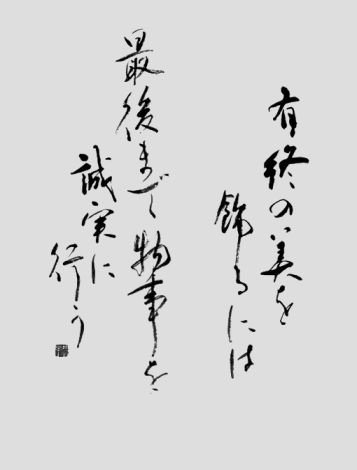 有終の美を
飾るには
最後まで物事を
誠実に
行う